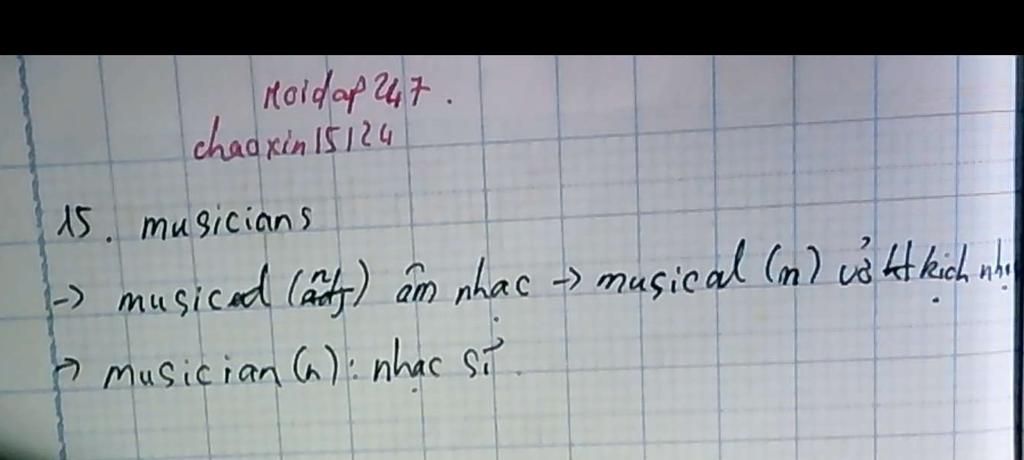 Hoidap247.
chaoxin15124
15. musicians
-> music (n) âm nhạc -> musical (n) vở kịch
-> musician (n): nhạc sĩ.